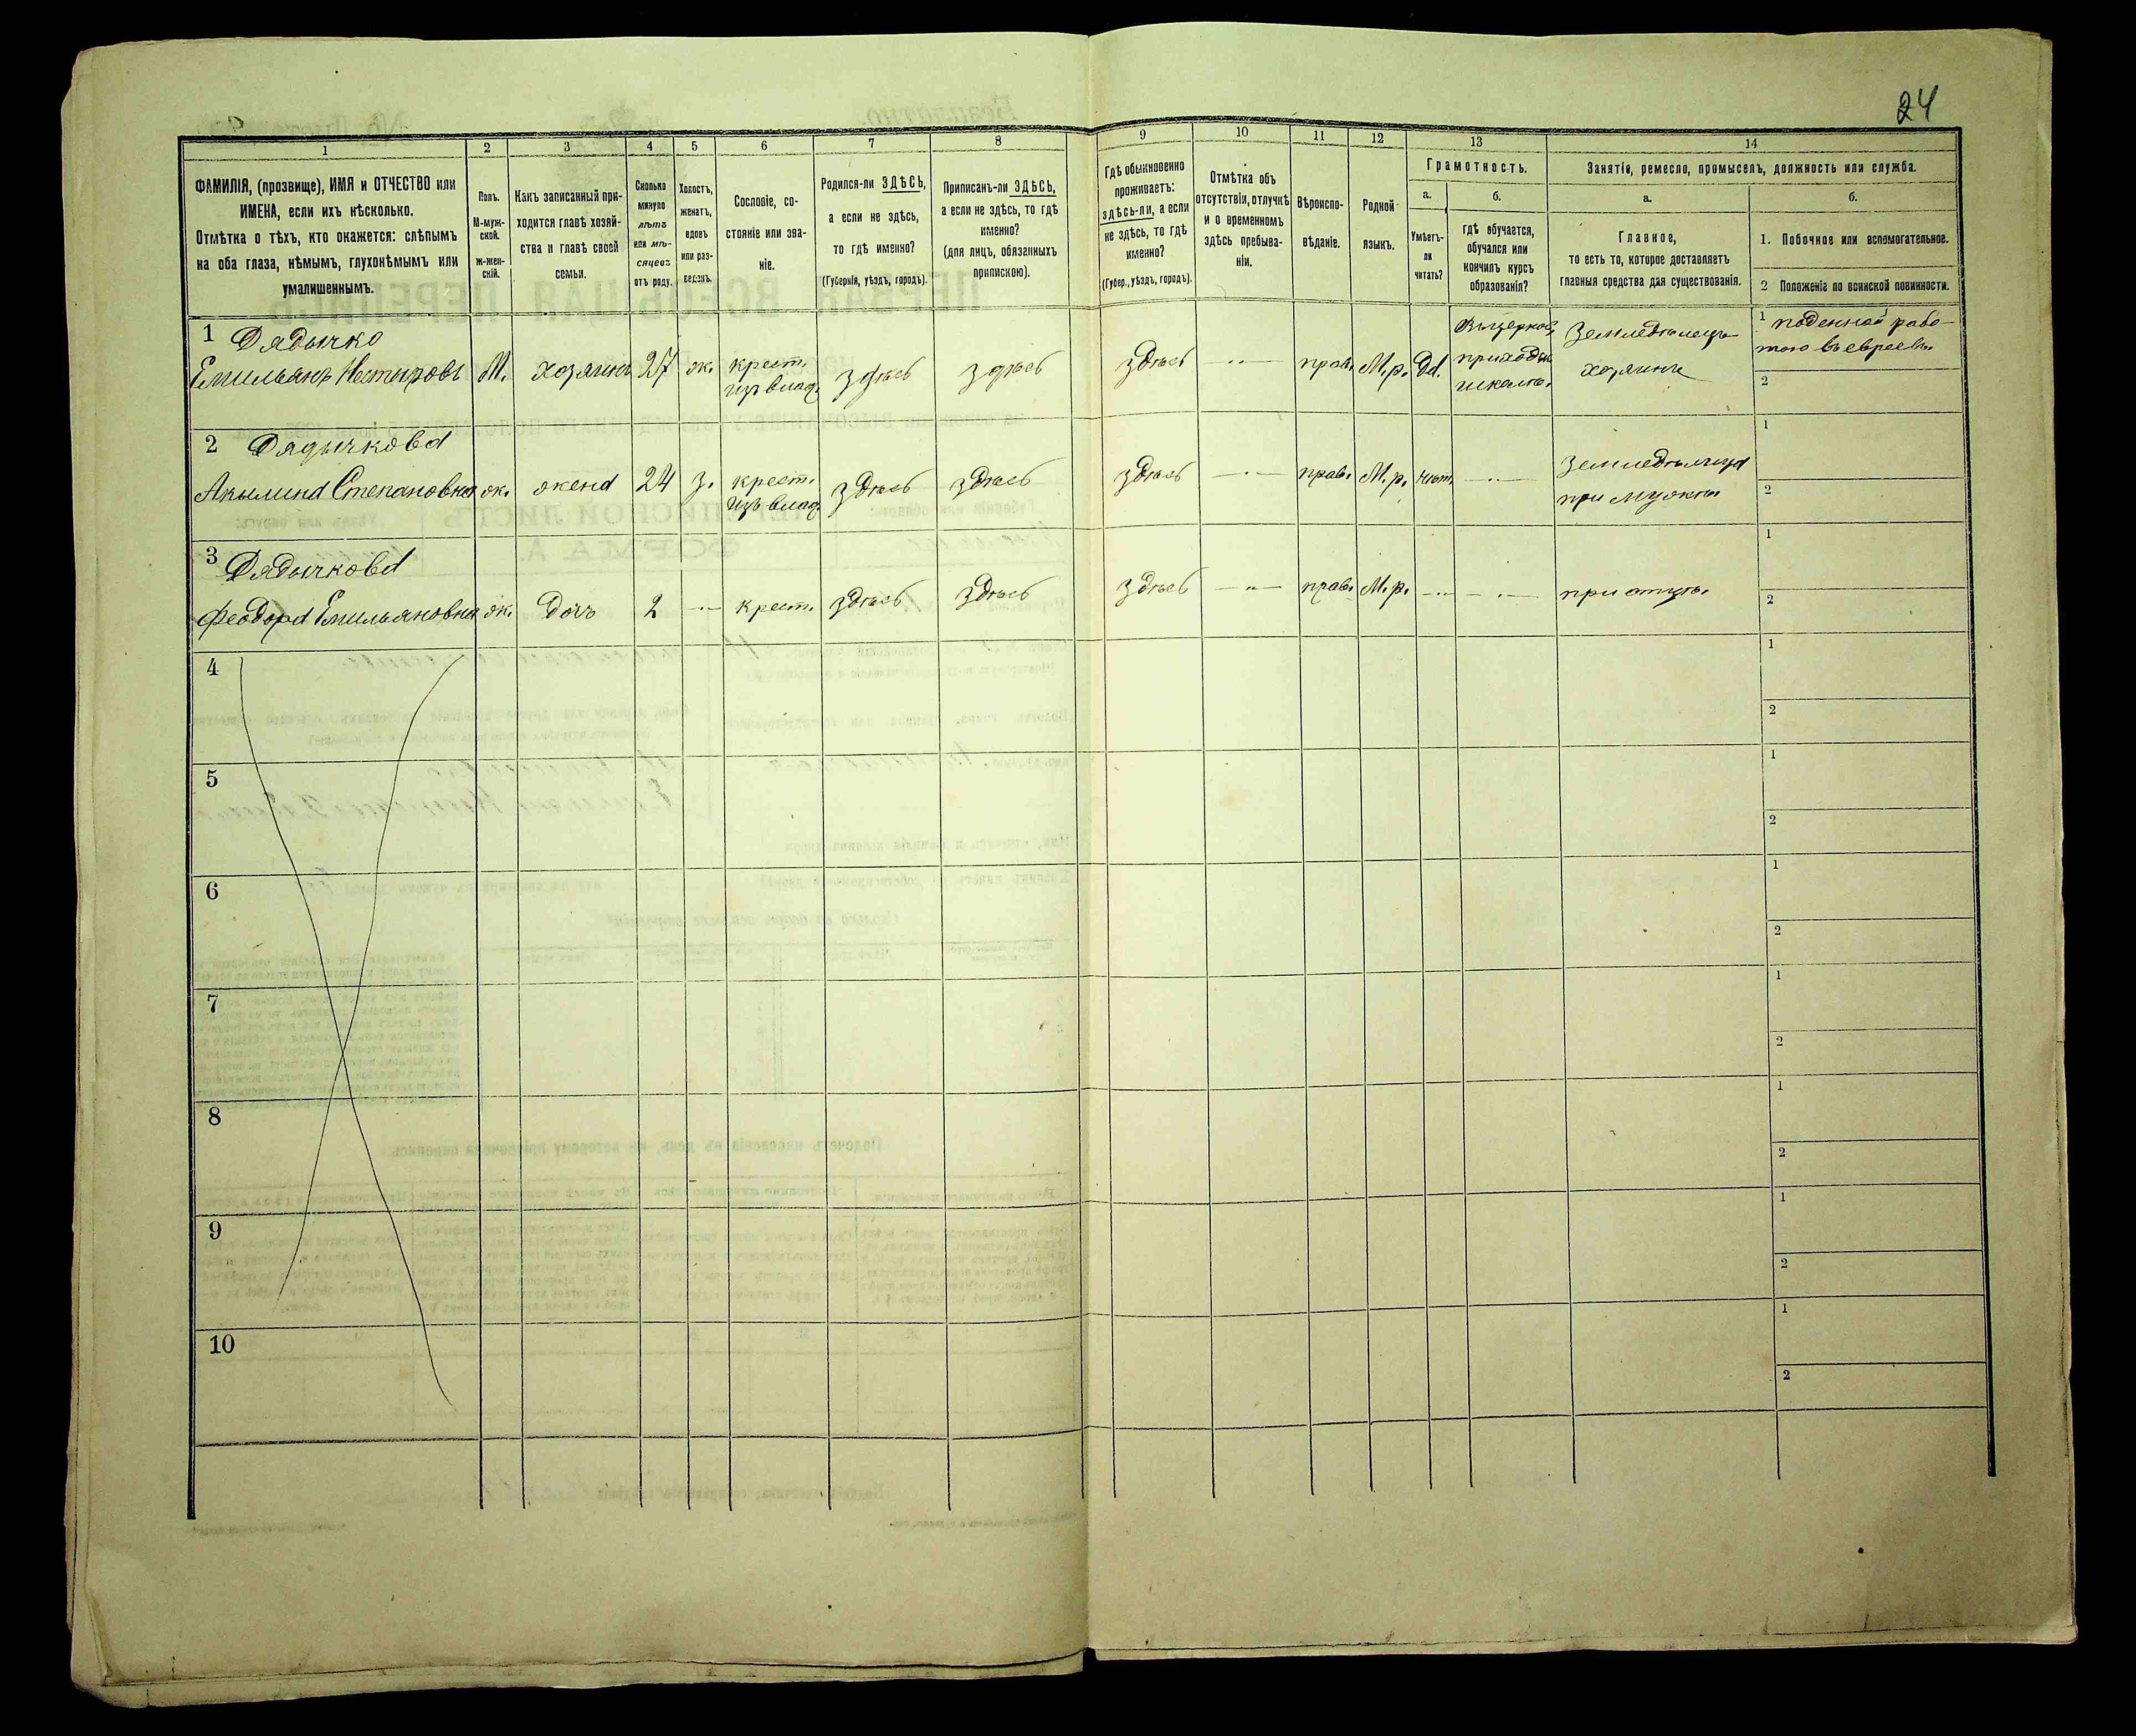 24
1
2
3
4
5
6
7
8
9
10
11
12
13
14
ФАМИЛІЯ, (прозвище), ИМЯ и ОТЧЕСТВО или
ИМЕНА, если ихъ нѣсколько.
Отмѣтка о тѣхъ, кто окажется: слѣпымъ
на оба глаза, нѣмымъ, глухонѣмымъ или
умалишеннымъ.
Полъ.
М-муж-
ской.
ж-жен-
скій.
Какъ записанный при-
ходится главѣ хозяй-
ства и главѣ своей
семьи.
Сколько
минуло
лѣтъ
или мѣ-
сяцевъ
отъ роду.
Холостъ,
женатъ,
вдовъ
или раз-
веденъ.
Сословіе, со-
стояніе или зва-
ніе.
Родился-ли ЗДѢСЬ,
а если не здѣсь,
то гдѣ именно?
(Губернія, уѣздъ, городъ).
Приписанъ-ли ЗДѢСЬ,
а если не здѣсь, то гдѣ
именно?
(для лицъ, обязанныхъ
припискою).
Гдѣ обыкновенно
проживаетъ:
здѣсь-ли, а если
не здѣсь, то гдѣ
именно?
(Губер., уѣздъ, городъ).
Отмѣтка объ
отсутствіи, отлучкѣ
и о временномъ
здѣсь пребыва-
ніи.
Вѣроиспо-
вѣданіе.
Родной
языкъ.
Грамотность.
а.
Умѣетъ-
ли
читать?
б.
гдѣ обучается,
обучался или
кончилъ курсъ
образованія?
Занятіе, ремесло, промыселъ, должность или служба.
а.
Главное,
то есть то, которое доставляетъ
главныя средства для существованія.
б.
1. Побочное или вспомогательное.
2 Положеніе по воинской повинности.
1 Дядычко
Емильянъ Нестыровъ М. хозяинъ 27 ж. крест. изъ влад. здѣсь здѣсь здѣсь -"- прав. М.р. Да. Въ церков. приходск. школѣ. Земледѣлецъ хозяинъ 1 поденной рабо-
тою въ евреевъ.
2
2 Дядычкова
Акылина Степановна ж. жена 24 з. крест. изъ влад. здѣсь здѣсь здѣсь -"- прав. М.р. нѣт. -"- земледѣлица при мужѣ.
1
2
3 Дядычкова
Феодора Емильяновна ж. дочь 2 -"- крест. здѣсь здѣсь здѣсь -"- прав. М.р. -"- -"- при отцѣ.
1
2
4
1
2
5
1
2
6
1
2
7
1
2
8
1
2
9
1
2
10
1
2